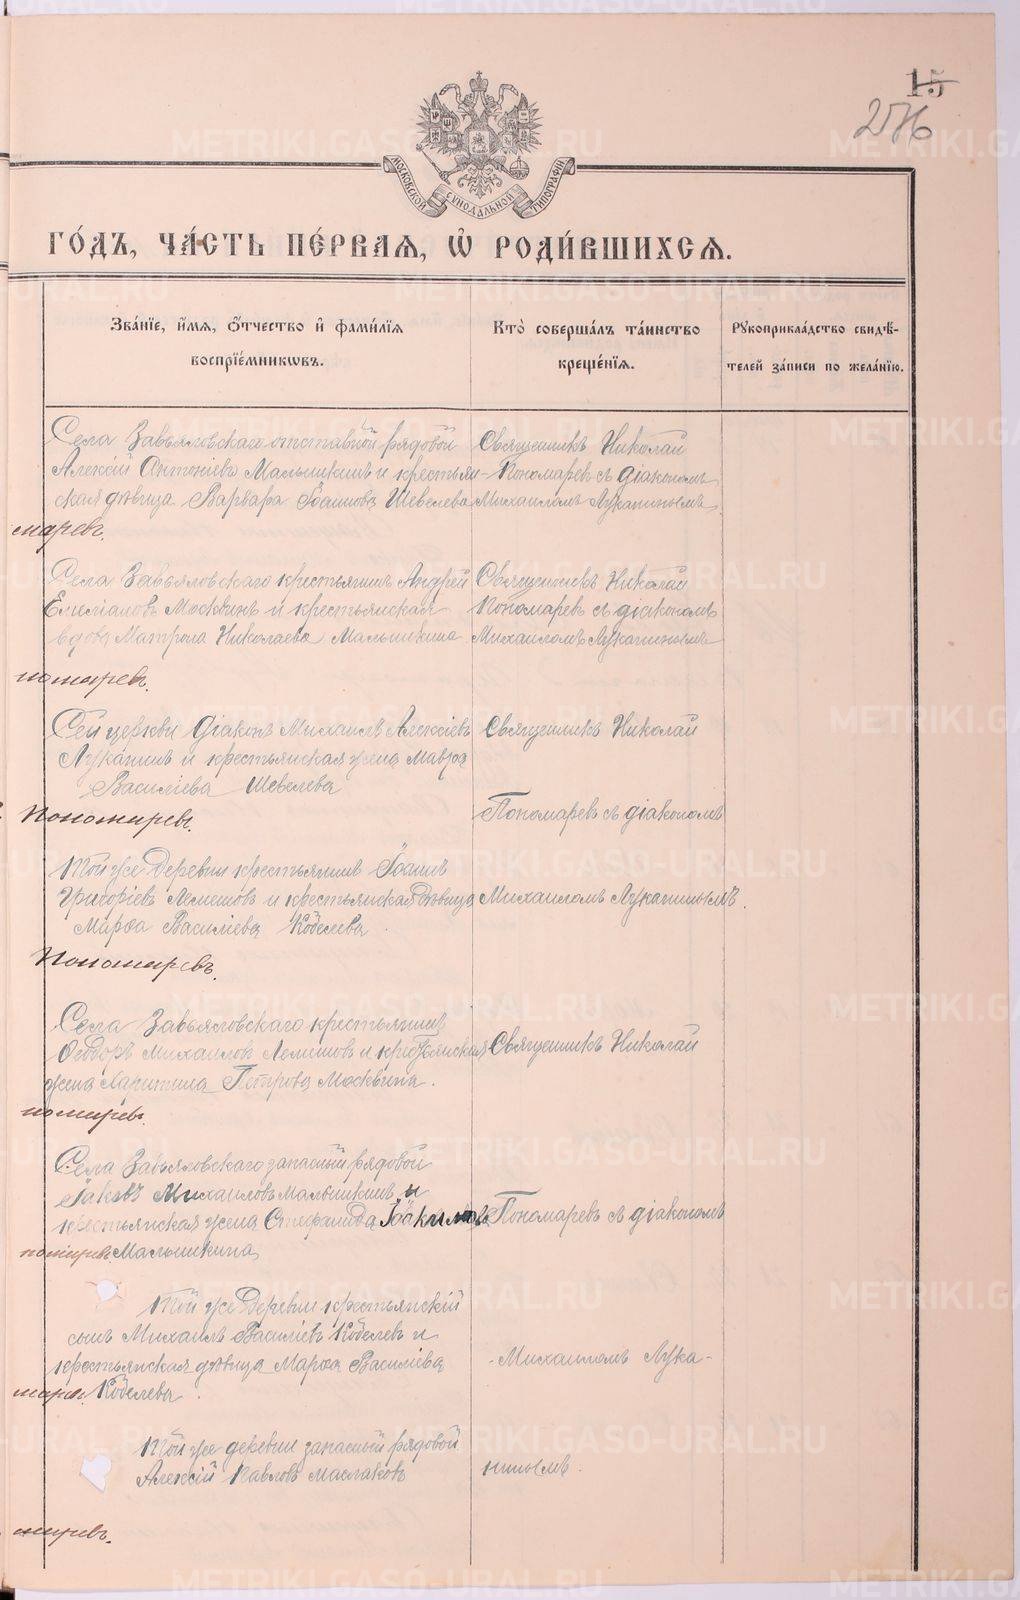 15
276
МОСКОВСКОЙ СѴНОДАЛЬНОЙ ТИПОГРАФІИ
ГО́ДЪ, ЧА́СТЬ ПЕ́РВАЯ, Ѽ РОДИ́ВШИХСЯ.
Зва́нїе, и҆́мя, ѻ҆́тчество и҆ фами́лїя
воспрїе́мникѡвъ.
Кто̀ соверша́лъ та́инство
креще́нїя.
Рꙋкоприкла́дство свидѣ́-
телей за́писи по жела́нїю.
Села Завьяловскаго отставной рядовой
Алексій Антоніевъ Малышкинъ и крестьян-
ская дѣвица Варвара Іоаннова Шевелева
Священникъ Николай
Пономаревъ съ діакономъ
Михаиломъ Луканинымъ.
маревъ.
Села Завьяловскаго крестьянинъ Андрей
Емеліановъ Москвинъ и крестьянская
вдова Матрона Николаева Малышкина
Священникъ Николай
Пономаревъ съ діакономъ
Михаиломъ Лукагинымъ
номаревъ.
Сей церкви діаконъ Михаилъ Алексіевъ
Луканинъ и крестьянская жена Мавра
Василіева Шевелева
Священникъ Николай
Пономаревъ.
Пономаревъ съ діакономъ
Той же деревни крестьянинъ Іоаннъ
Григоріевъ Лемешовъ и крестьянская дѣвица
Марѳа Василіева Кобелева.
Михаиломъ Лукагинымъ.
Пономаревъ.
Села Завьяловскаго крестьянинъ
Ѳеодоръ Михаиловъ Лемешовъ и крестьянская
жена Харитина Петрова Москвина.
Священникъ Николай
номаревъ.
Села Завьяловскаго запасный рядовой
Іаковъ Михаиловъ Малышкинъ и
крестьянская жена Стефанида Іоакимова
Малышкина
Пономаревъ съ діакономъ
номаревъ.
Той же деревни крестьянскій
сынъ Михаилъ Василіевъ Кобелевъ и
крестьянская дѣвица Марѳа Василіева
Кобелева.
-Михаиломъ Лука-
маревъ.
Той же деревни запасный рядовой
Алексій Павловъ Маслаковъ
нинымъ.
маревъ.
METRIKI.GASO-URAL.RU